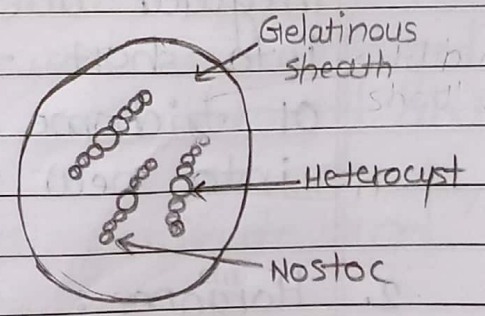 Gelatinous
sheath
Heterocyst
Nostoc